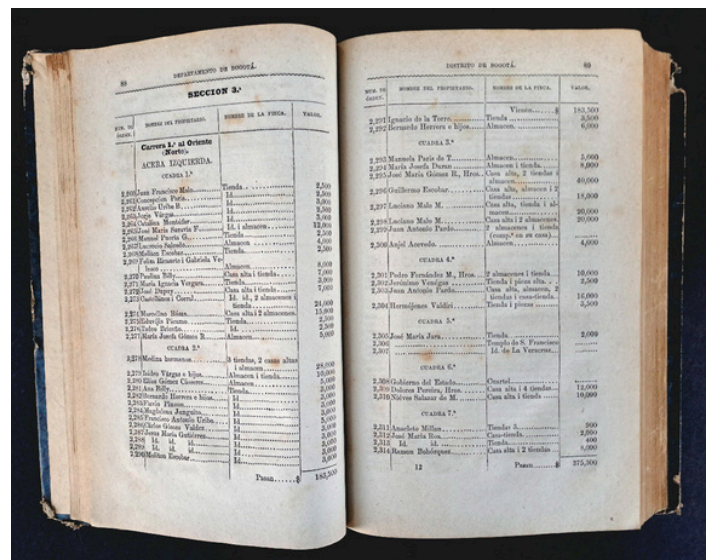 88
DEPARTAMENTO DE BOGOTÁ.
SECCION 3.ª
NUM. DE ÓRDEN. NOMBRE DEL PROPIETARIO. NOMBRE DE LA FINCA. VALOR.
Carrera 1.ª al Oriente
(Norte).
ACERA IZQUIERDA.
CUADRA 1.ª
2,260 Juan Francisco Malo Tienda 2,500
2,261 Concepcion Paris Id. 2,500
2,262 Amalia Uribe B. Id. 3,000
2,263 Jorje Várgas Id. 2,500
2,264 Catalina Montúfar Id. 3,000
2,265 José María Saravia F. Id. i almacen 12,000
2,266 Manuel Puerta G. Tienda 2,500
2,267 Lucrecio Salcedo Almacen 4,000
2,268 Meliton Escobar Tienda 2,500
2,269 Felix Ricaurte i Gabriela Ve-
lasco Almacen 8,000
2,270 Paulina Billy Casa alta i tienda 7,000
2,271 María Ignacia Vergara Tienda 3,000
2,272 José Dupuy Casa alta i tienda 7,000
2,273 Castellanos i Corral Id. id., 2 almacenes i
tienda 24,000
2,274 Marcelino Rósas Casa alta i 2 almacenes. 15,000
2,275 Eduvijis Pícamo Tienda 2,500
2,276 Tadea Briceño Id. 2,500
2,277 María Josefa Gómez R. Almacen 5,000
CUADRA 2.ª
2,278 Medina hermanos 3 tiendas, 2 casas altas
i almacen 28,000
2,279 Isidro Várgas e hijos Almacen i tienda 10,000
2,280 Elías Gómez Cáceres Almacen 5,000
2,281 Ana Billy Tienda 3,000
2,282 Bernardo Herrera e hijos Id. 3,000
2,283 Flavio Pinzon Id. 3,000
2,284 Magdalena Junguito Id. 3,000
2,285 Francisco Antonio Uribe Id. 5,000
2,286 Cárlos Gómez Valdez Id. 3,000
2,287 Jesus María Gutiérrez Id. 3,000
2,288 Id. id. id. Id. 3,000
2,289 Id. id. id. Id. 3,000
2,290 Meliton Escobar Id. 3,000
Pasan $ 183,500
DISTRITO DE BOGOTÁ. 89
NUM. DE ÓRDEN. NOMBRE DEL PROPIETARIO. NOMBRE DE LA FINCA. VALOR.
Vienen $ 183,500
2,291 Ignacio de la Torre Tienda 3,500
2,292 Bernardo Herrera e hijos Almacen 6,000
CUADRA 3.ª
2,293 Manuela Paris de T. Almacen 5,000
2,294 María Josefa Duran Almacen i tienda 8,000
2,295 José María Gómez R., Hros. Casa alta, 2 tiendas i
almacen 40,000
2,296 Guillermo Escobar Casa alta, almacen i 2
tiendas 18,000
2,297 Luciano Malo M. Casa alta, tienda i al-
macen 20,000
2,298 Luciano Malo M. Casa alta i 2 almacenes. 20,000
2,299 Juan Antonio Pardo 2 almacenes i tienda
(comp.ª en su casa)
2,300 Anjel Acevedo Almacen 4,000
CUADRA 4.ª
2,301 Pedro Fernández M., Hros. 2 almacenes i tienda 10,000
2,302 Jerónimo Venégas Tienda i pieza alta 2,500
2,303 Juan Antonio Pardo Casa alta, almacen, 2
tiendas i casa-tienda 16,000
2,304 Hermójenes Valdiri Tienda i piezas 3,500
CUADRA 5.ª
2,305 José María Jara Tienda 2,000
2,306 Templo de S. Francisco
2,307 Id. de La Veracruz
CUADRA 6.ª
2,308 Gobierno del Estado Cuartel
2,309 Dolores Pereira, Hros. Casa alta i 4 tiendas 12,000
2,310 Niéves Salazar de M. Casa alta i tienda 10,000
CUADRA 7.ª
2,311 Anacleto Millan Tiendas 3 900
2,312 José María Roa Casa-tienda 2,000
2,313 Id. id. Id. 400
2,314 Ramon Bohórquez Casa alta i 2 tiendas 8,000
12 Pasan $ 375,300